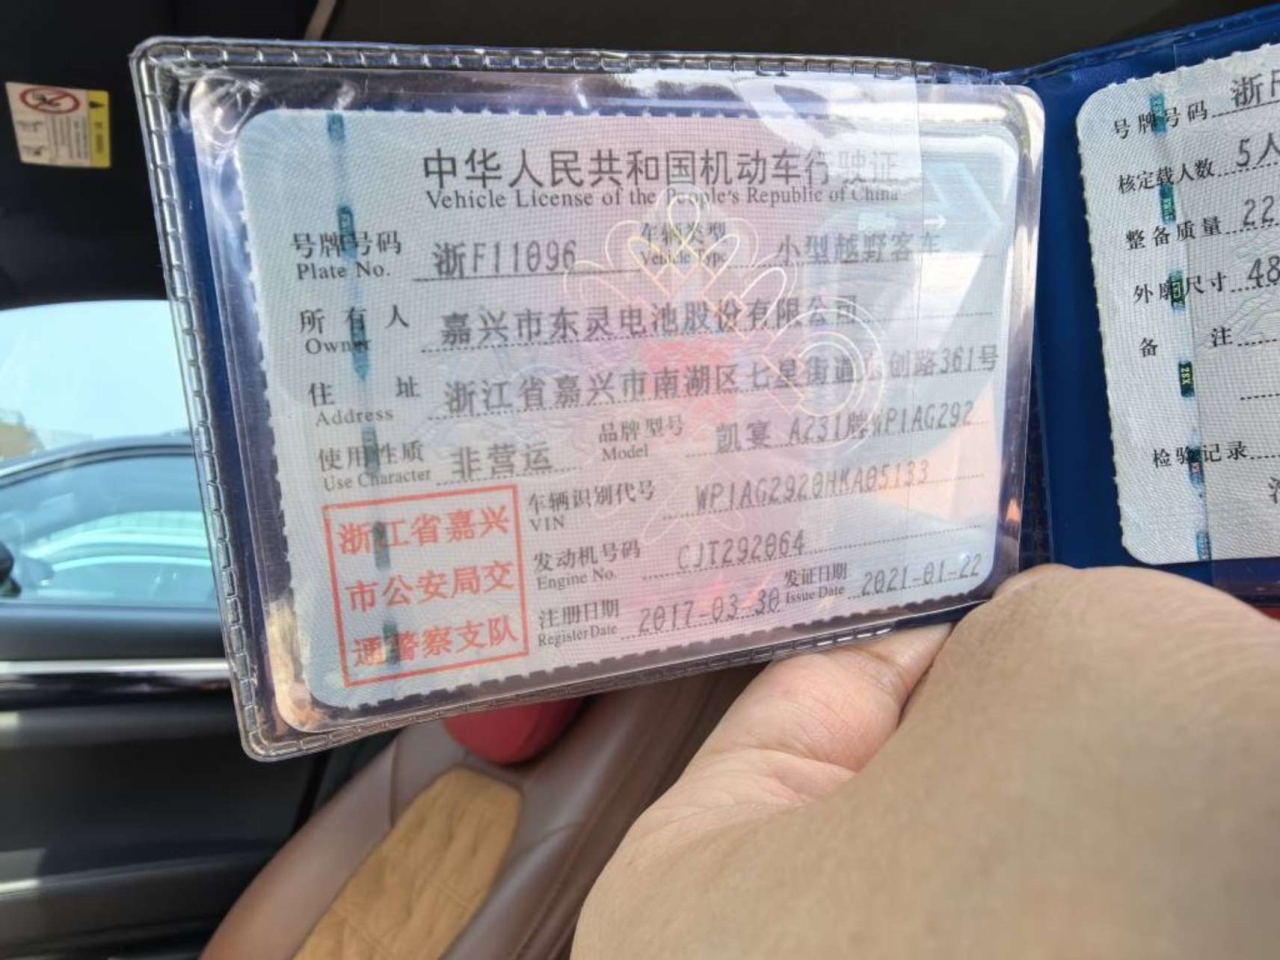 中华人民共和国机动车行驶证
Vehicle License of the People's Republic of China
号牌号码 浙F11096 车辆类型 小型越野客车
Plate No. Vehicle Type
所有人 嘉兴市东灵电池股份有限公司
Owner
住址 浙江省嘉兴市南湖区七星街道 创路361号
Address
使用性质 非营运 品牌型号 凯宴 A231牌WP1AG292
Use Character Model
车辆识别代号 WP1AG2920HKA05133
VIN
发动机号码 CJT292064
Engine No.
注册日期 2017-03-30 发证日期 2021-01-22
Register Date Issue Date
浙江省嘉兴
市公安局交
通警察支队
号牌号码 浙F
核定载人数 5人
整备质量 22
外廓尺寸 48
备注
检验记录